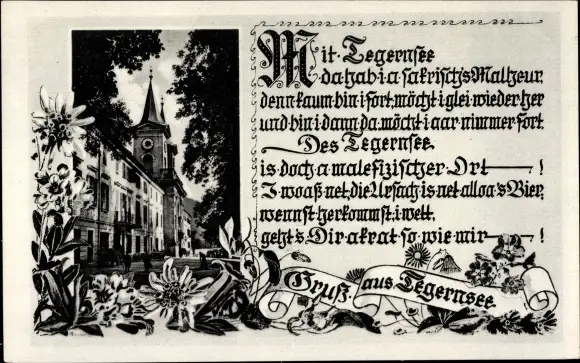 Mit·Tegernsee
da·hab·i·a·sakrisch's·Malheur,
denn·kaum·bin·i·fort,·möcht·i·glei·wieder·her
und·bin·i·dann·da,·möcht·i·aar·nimmer·fort.
Des·Tegernsee,
is·doch·a·malefizischer·Ort — !
I·woaß·net,·die·Ursach·is·net·alloa's·Bier,
wennst·herkommst,·i·wett,
geht's·Dir·akrat·so·wie·mir — !
Gruß·aus·Tegernsee.